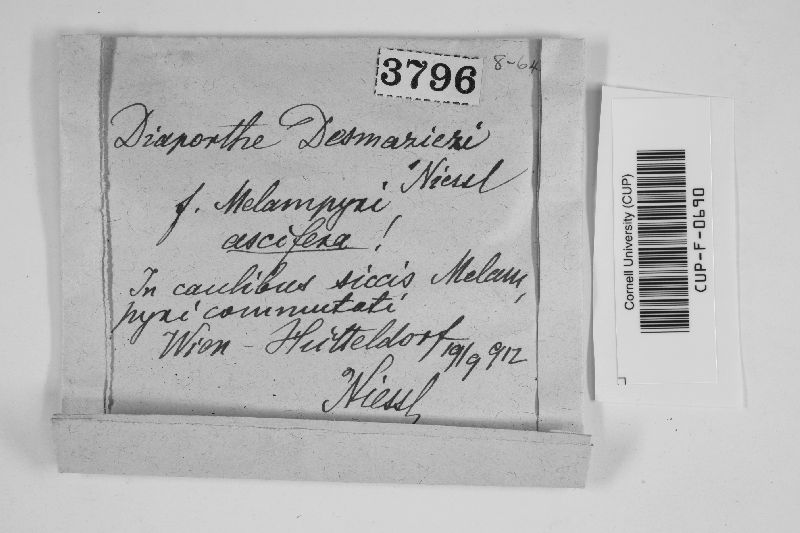 3796
8-64
Diaporthe Desmazieri
Niessl
f. Melampyri
ascifera!
In caulibus siccis Melam,
pyri commutati
Wien - Hütteldorf 19/9 912
Niessl
Cornell University (CUP)
CUP-F-0690